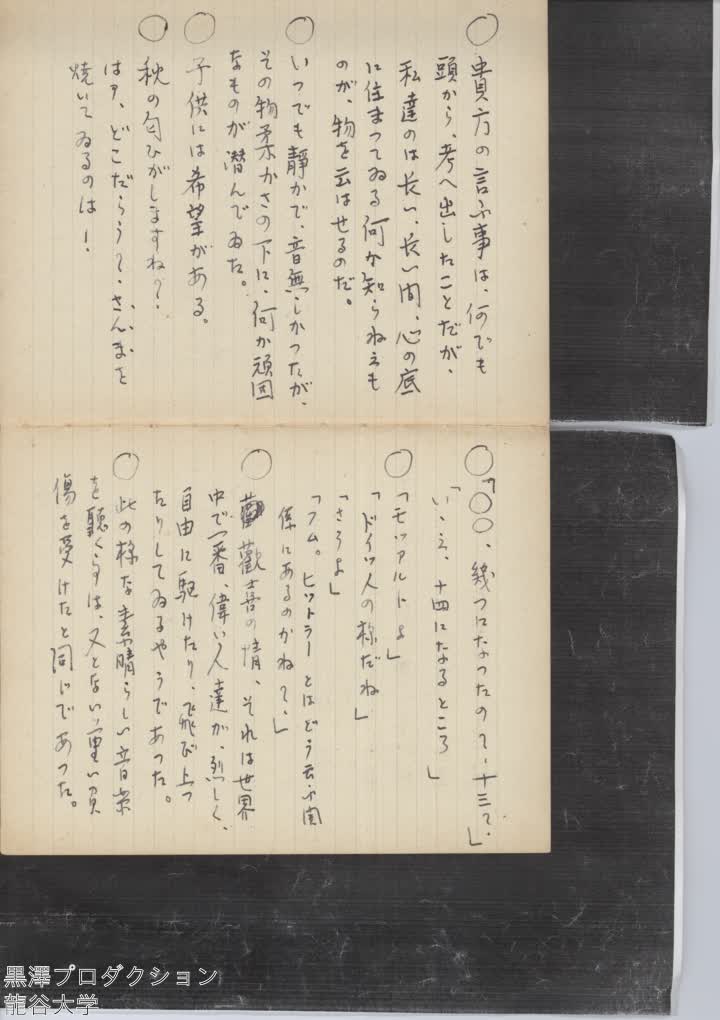 ○ 貴方の言ふ事は、何でも
頭から、考へ出したことだが、
私達のは長い、長い間、心の底
に住まつてゐる何か知らねえも
のが、物を云はせるのだ。
○ いつでも静かで、音無しかつたが、
その物柔かさの下に、何か頑固
なものが潜んでゐた。
○ 子供には希望がある。
○ 秋の匂ひがしますね?
はア、どこだらうて、さんまを
焼いてゐるのは!
○「〇〇、幾つになつたので、十三て。」
「いゝえ、十四になるところ」
○「モツアルトよ」
「ドイツ人の様だね」
「さうよ」
「フム。ヒツトラーとはどう云ふ関
係にあるのかねて、」
○ 歡喜の情、それは世界
中で一番、偉い人達が、烈しく、
自由に駆けたり、飛び上つ
たりしてゐるやうであつた。
○ 此の様な素晴らしい音楽
を聽く事は、又とない、重い負
傷を受けたと同じであつた。
黒澤プロダクション
龍谷大学